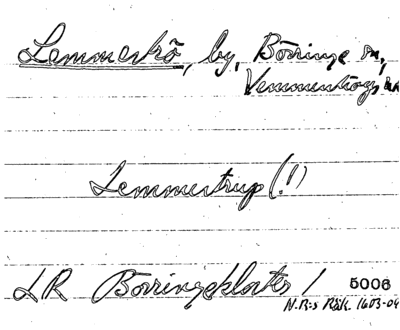 Lemmeströ, by, Börringe sn,
Vemmenhögs hd
Lemmestrup (!)
LR Börringekloster / 5006
N.R:s Räk. 1603-04